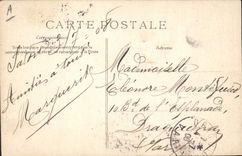 A
CARTE POSTALE
Correspondance
Adresse
Salon
Amitiés à tous
Marguerite
Mademoiselle
Eléonore
12 Bd de l'Esplanade
Draguignan
Var